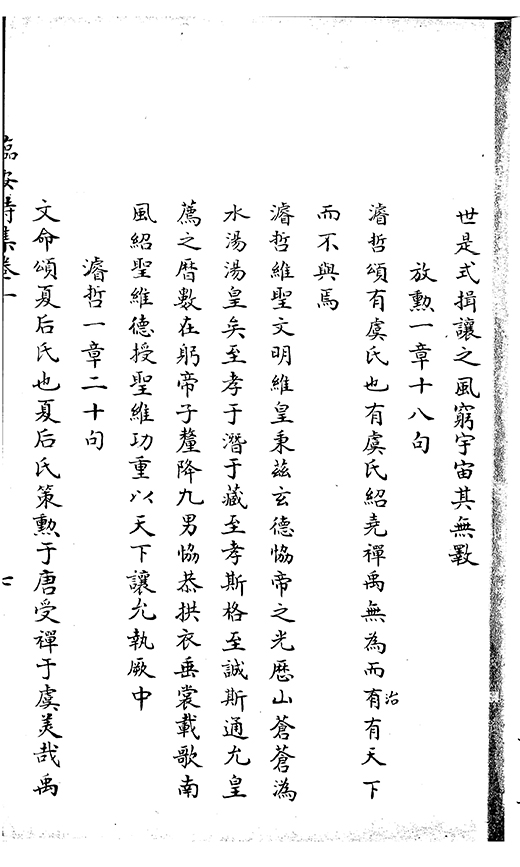 世是式揖讓之風窮宇宙其無斁
放勲一章十八句
濬哲頌有虞氏也有虞氏紹堯禪禹無為而有有天下
治
而不與焉
濬哲維聖文明維皇秉兹玄德恊帝之光歷山蒼蒼溈
水湯湯皇矣至孝于潛于藏至孝斯格至誠斯通允皇
薦之曆數在躬帝子釐降九男恊恭拱衣垂裳載歌南
風紹聖維德授聖維功重以天下讓允執厥中
濬哲一章二十句
文命頌夏后氏也夏后氏策勲于唐受禪于虞美哉禹
臨安詩集卷一
七